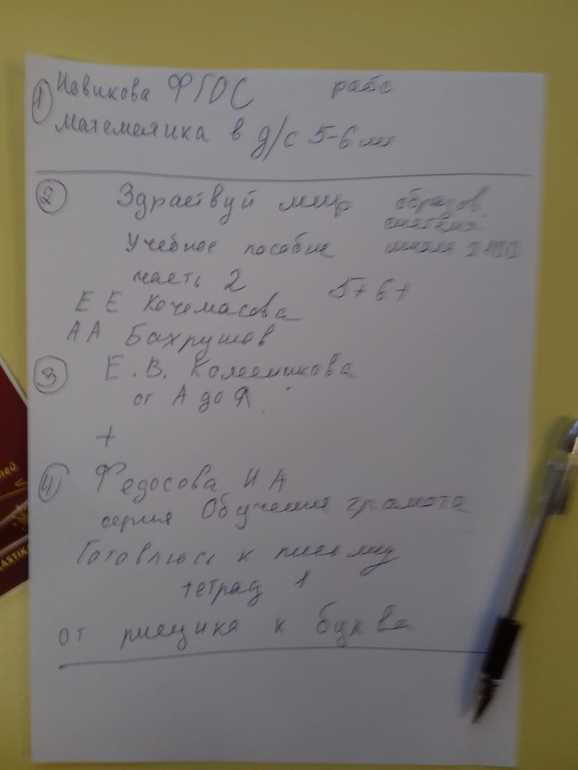 1 Новикова ФГОС рабс
Математика в д/с 5-6
2 Здраствуй мир образов.
Учебное пособие школа
часть 2 5+ 6+
Е Е Кочемасова
А А Вахрушов
3 Е. В. Колесникова
от А до Я.
+
4 Федосова Н А
серия Обучения грамота
Готовлюсь к письму
тетрад 1
от рисунка к букве